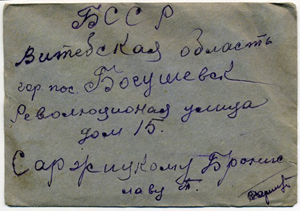 БССР
Витебская область
гор. пос. Богушевск
Революционая улица
дом 15.
Саржицкому Бронис
лаву Т.